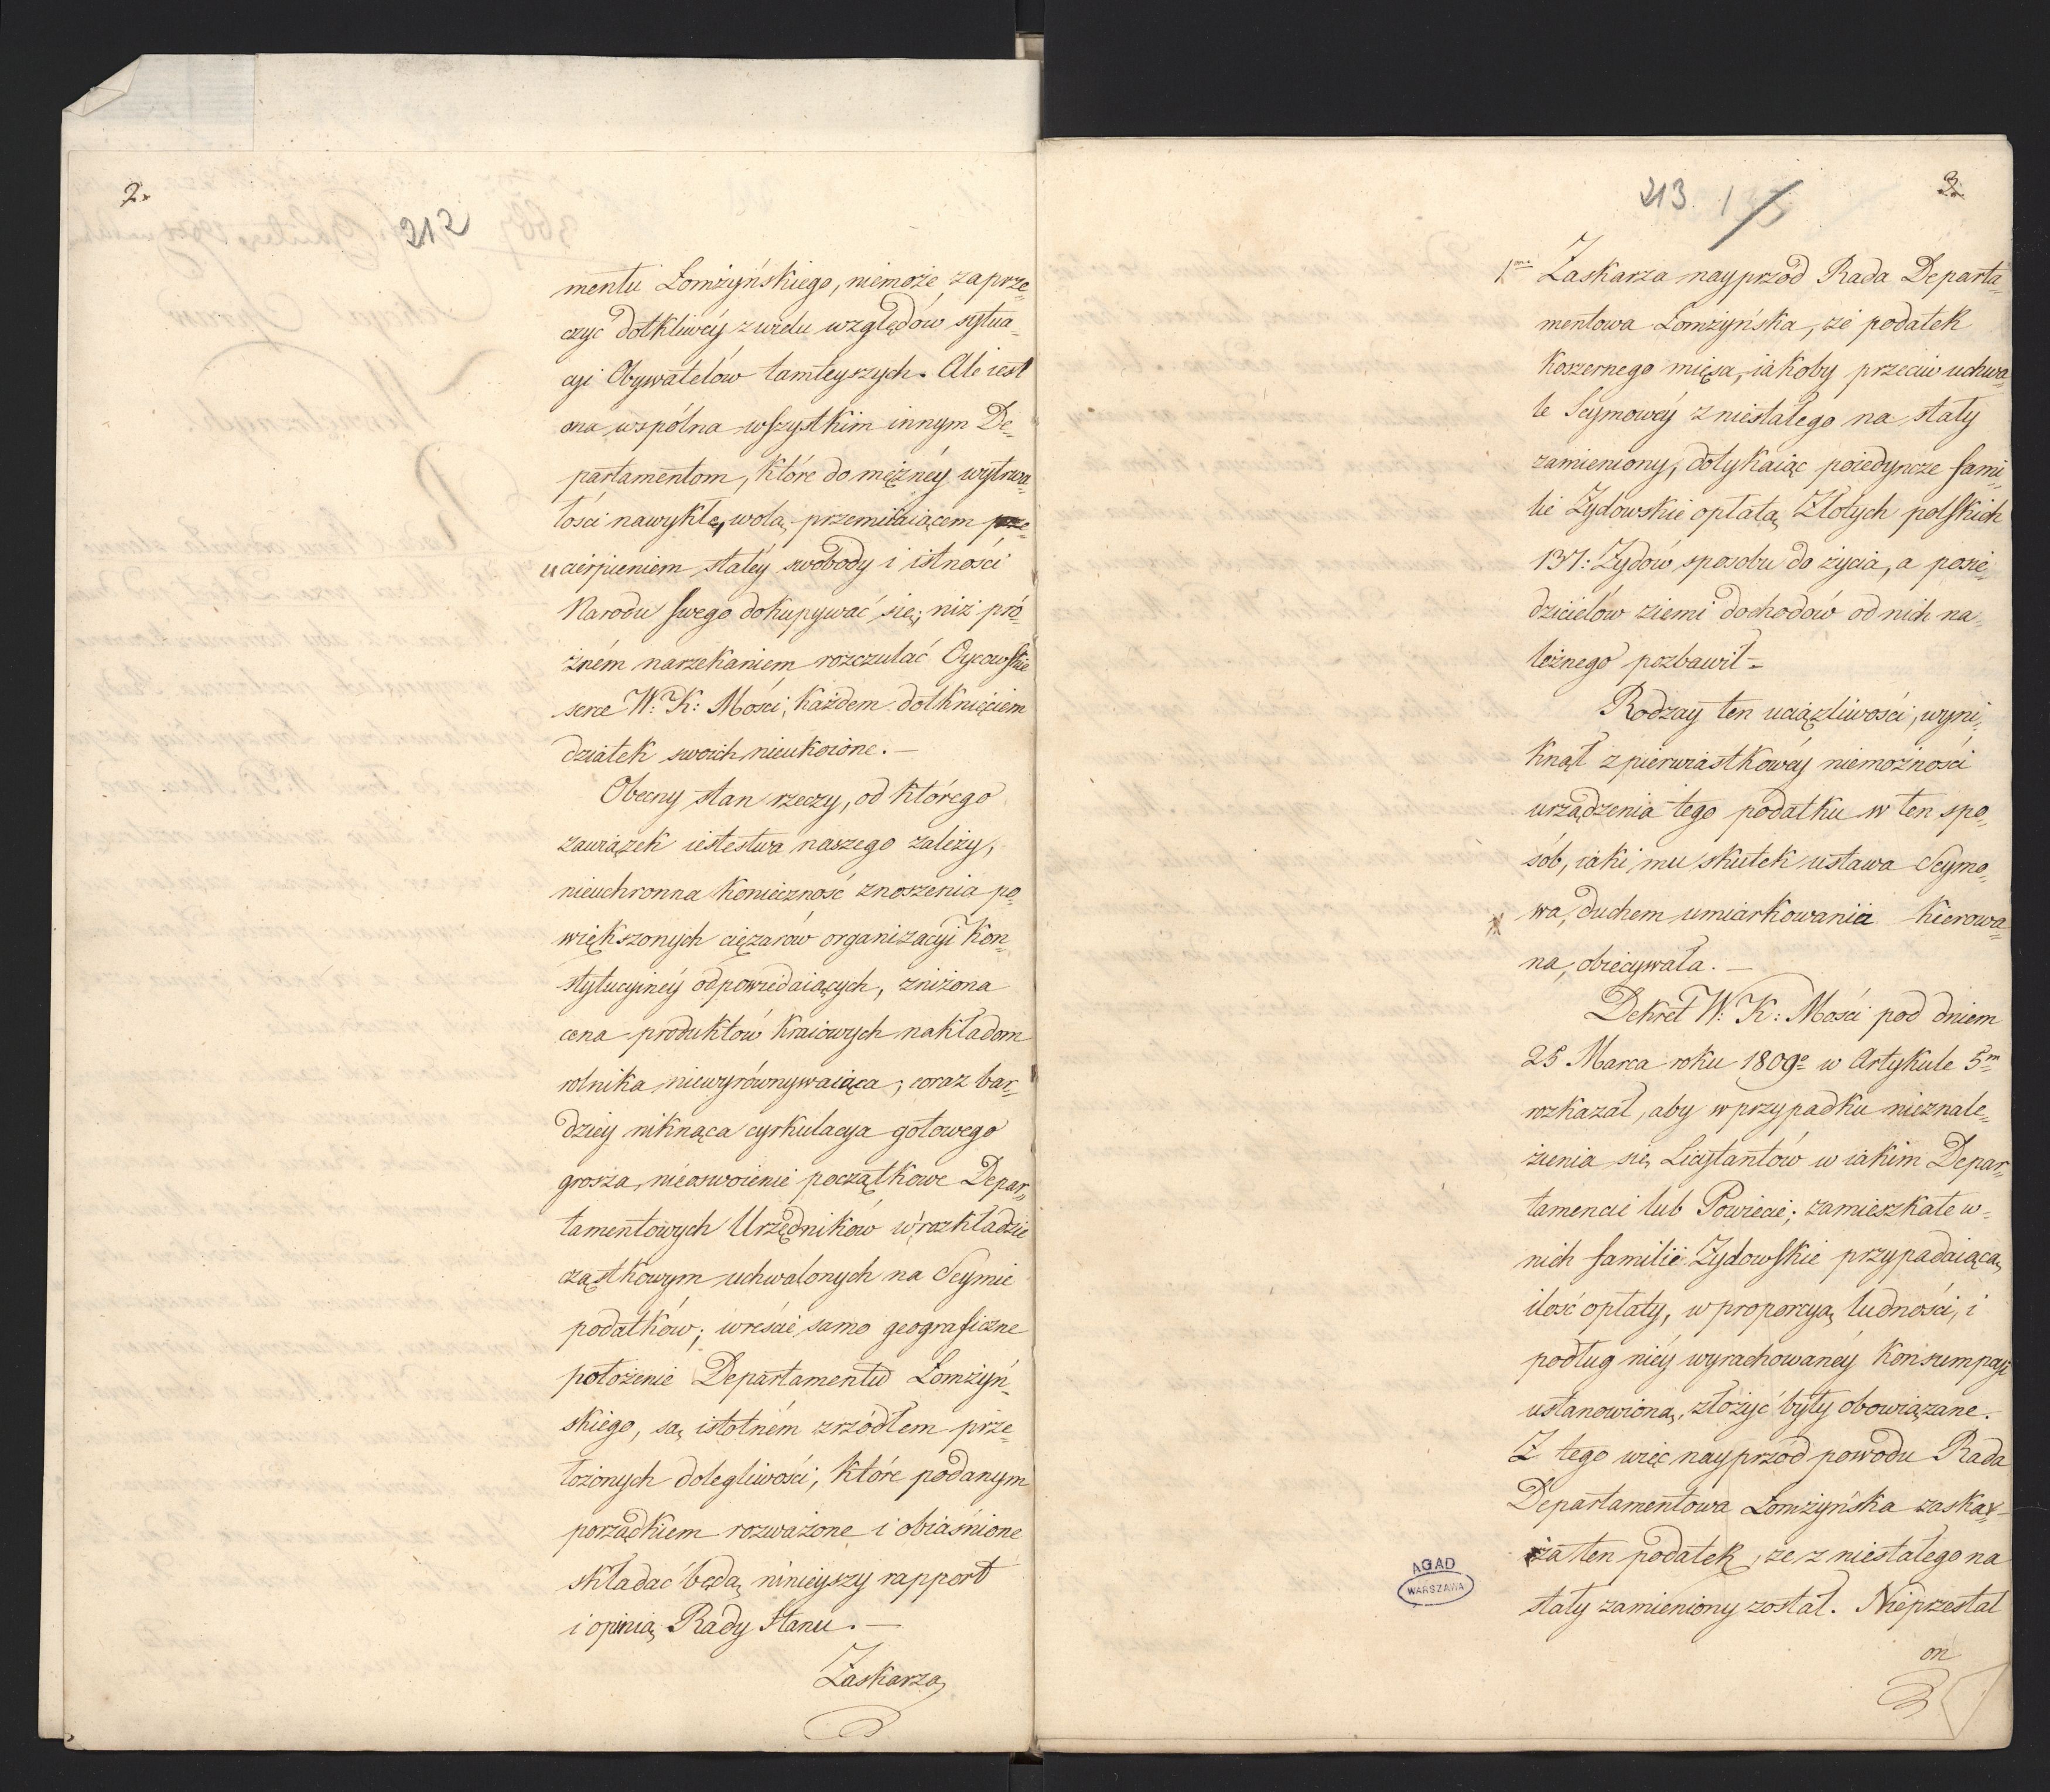 2.
212
mentu Łomżyńskiego, niemoże zaprze-
czyć dotkliwéy z wielu względów sytua-
cyi Obywatelów tamteyszych. Ale iest
ona wspólna wszystkim innym De-
partamentom, które do mężnéy wytrwa-
łości nawykłe, wolą przemiiaiącem
ucierpieniem stałéy swobody i istności
Narodu swego dokupywać się; niż pró-
żném narzekaniem rozczulać Oycowskie
serce W: K: Mości, każdem dotknięciem
dziatek swoich nieukoione. —
Obecny stan rzeczy, od którego
zawiązek iestestwa naszego zależy,
nieuchronna konieczność znoszenia po-
większonych ciężarów organizacyi Kon-
stytucyinéy odpowiedaiących, zniżona
cena produktów kraiowych nakładom
rolnika niewyrównywaiąca; coraz bar-
dziey niknąca cyrkulacya gotowego
grosza, nieoswoienie początkowe Depar-
tamentowych Urzędników w rozkładzie
cząstkowym uchwalonych na Seymie
podatków; wreście samo geograficzne
położenie Departamentu Łomżyń-
skiego, są istotném zrzódłem prze-
łożonych dolegliwości, które podanym
porządkiem rozważone i obiaśnione
składać będą ninieyszy rapport
i opinią Rady Stanu. —
Zaskarza
213
3.
1mo Zaskarza nayprzód Rada Departa-
mentowa Łomżyńska, że podatek
koszernego mięsa, iakoby przeciw uchwa-
le Seymowéy z niestałego na stały
zamieniony, dotykaiąc poiedyncze fami-
lie Żydowskie opłatą Złotych polskich
137: Żydów sposobu do życia, a posie-
dzicielów ziemi dochodów od nich na-
leżnego pozbawił —
Rodzay ten uciążliwości, wyni-
knął z pierwiastkowéy niemożności
urządzenia tego podatku w ten spo-
sób, iaki mu skutek ustawa Seymo-
wa, duchem umiarkowania kierowa-
na, obiecywała. —
Dekret W: K: Mości pod dniem
25 Marca roku 1809o w Artykule 5m
rozkazał, aby w przypadku nieznale-
zienia się Licytantów w iakim Depar-
tamencie lub Powiecie; zamieszkałe w
nich familie Żydowskie przypadaiącą
ilość opłaty, w proporcyą ludności, i
podług niéy wyrachowanéy Konsumpcyi
ustanowioną, złożyć były obowiązane.
Z tego więc nayprzód powodu Rada
Departamentowa Łomżyńska zaskar-
ża ten podatek, że z niestałego na
stały zamieniony został. Nieprzestał
on
AGAD
WARSZAWA